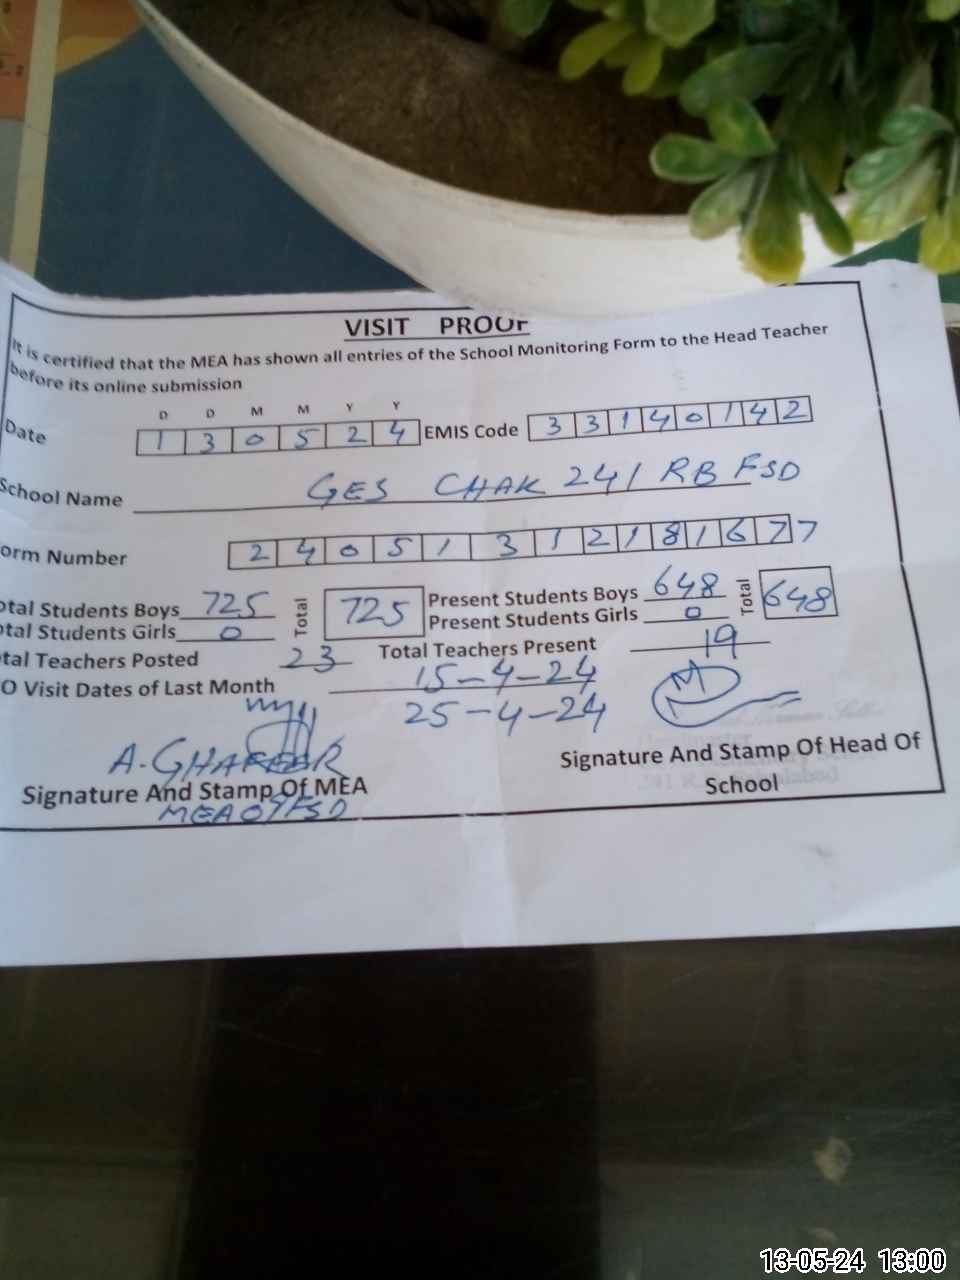 VISIT PROOF
It is certified that the MEA has shown all entries of the School Monitoring Form to the Head Teacher
before its online submission
D D M M Y Y
Date 1 3 0 5 2 4 EMIS Code 3 3 1 4 0 1 4 2
School Name GES CHAK 241 RB FSD
orm Number 2 4 0 5 1 3 1 2 1 8 1 6 7 7
otal Students Boys 725 Total 725 Present Students Boys 648 Total 648
otal Students Girls 0 Present Students Girls 0
tal Teachers Posted 23 Total Teachers Present 19
O Visit Dates of Last Month 15-4-24
25-4-24
A. GHAFOOR
Signature And Stamp Of MEA
Signature And Stamp Of Head Of
School
13-05-24 13:00